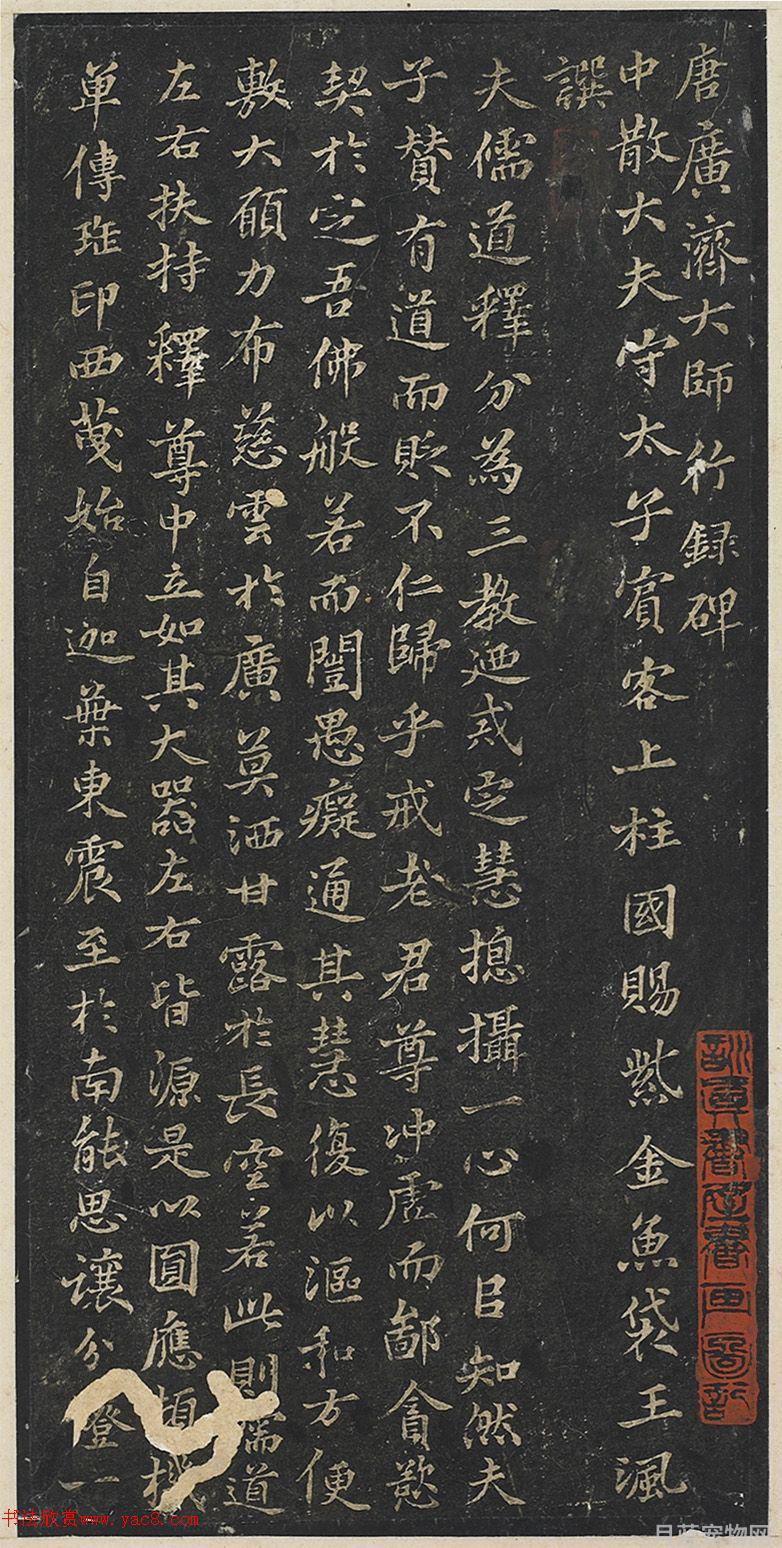 唐廣濟大師行錄碑
中散大夫守太子賓客上柱國賜紫金魚袋王渢
譔
夫儒道釋分為三教迺戒定慧揔攝一心何㠯知然夫
子贊有道而貶不仁歸乎戒老君尊冲虛而鄙貪慾
契於定吾佛般若而闓愚癡通其慧復以漚和方便
敷大願力布慈雲於廣莫洒甘露於長空若此則儒道
左右扶持釋尊中立如其大器左右皆源是以圓應頓機
單傳班印西蔑始自迦葉東震至於南能思讓分燈一
书法欣赏www.yac8.com